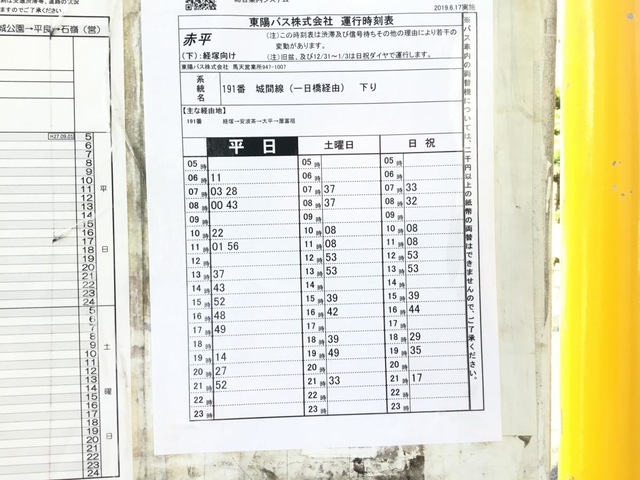 東陽バス株式会社 運行時刻表
2019.6.17実施
赤平
(下):経塚向け
(注)この時刻表は渋滞及び信号待ちその他の理由により若干の
変動があります。
(注)旧盆、及び12/31~1/3は日祝ダイヤで運行します。
東陽バス株式会社 馬天営業所947-1007
系統名
191番 城間線(一日橋経由) 下り
【主な経由地】
191番 経塚→安波茶→大平→屋富祖
平日 土曜日 日祝
05時 05時 05時
06時 11 06時 06時
07時 03 28 07時 37 07時 33
08時 00 43 08時 37 08時 32
09時 09時 09時
10時 22 10時 08 10時 08
11時 01 56 11時 08 11時 08
12時 12時 53 12時 53
13時 37 13時 53 13時 53
14時 43 14時 14時
15時 52 15時 39 15時 39
16時 48 16時 42 16時 44
17時 49 17時 17時
18時 18時 39 18時 29
19時 14 19時 49 19時 35
20時 27 20時 20時
21時 52 21時 33 21時 17
22時 22時 22時
23時 23時 23時
※バス車内の両替機については、二千円以上の紙幣の両替はできませんので、ご了承ください。
すのでご了承ください
城公園→平良→石嶺(営)
H27.09.01
5
6
7
8
9
10
11
12
13
14
15
16
17
18
19
20
21
22
23
24
平日
5
6
7
8
9
10
11
12
13
14
15
16
17
18
19
20
21
22
23
24
土曜日